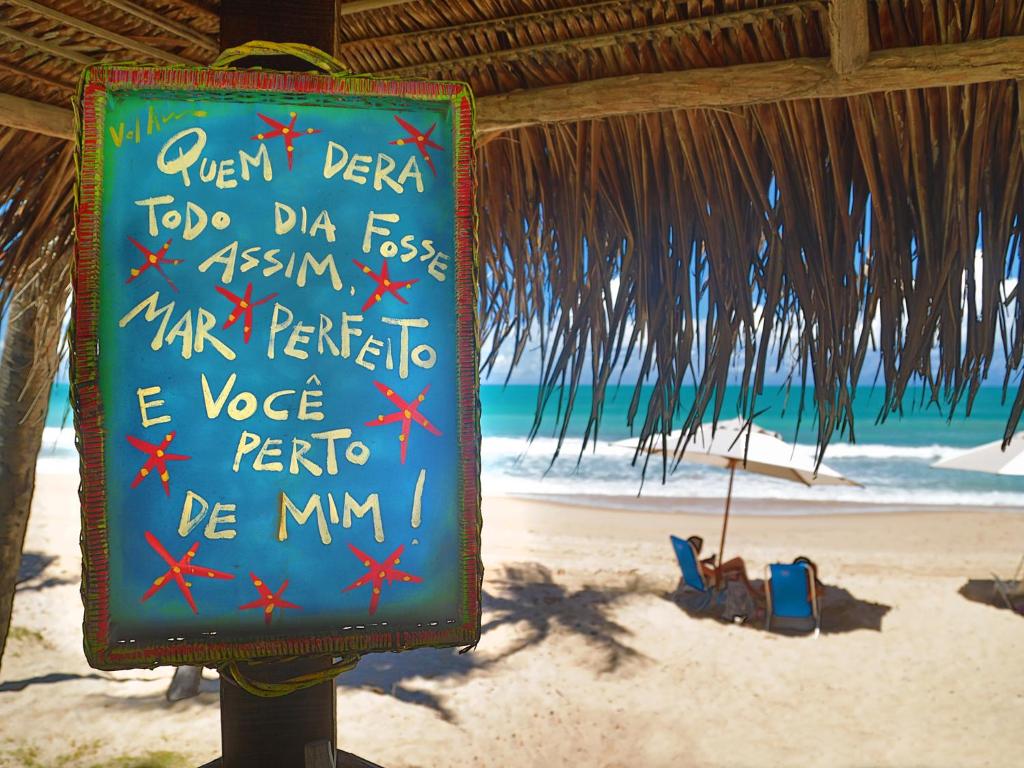 QUEM DERA
TODO DIA FOSSE
ASSIM,
MAR PERFEITO
E VOCÊ
PERTO
DE MIM!